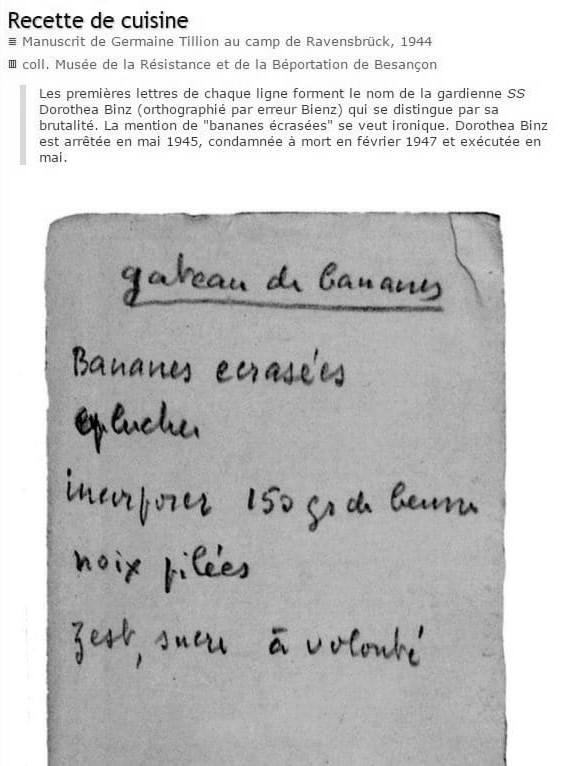 Recette de cuisine
Manuscrit de Germaine Tillion au camp de Ravensbrück, 1944
coll. Musée de la Résistance et de la Béportation de Besançon
Les premières lettres de chaque ligne forment le nom de la gardienne SS
Dorothea Binz (orthographié par erreur Bienz) qui se distingue par sa
brutalité. La mention de "bananes écrasées" se veut ironique. Dorothea Binz
est arrêtée en mai 1945, condamnée à mort en février 1947 et exécutée en
mai.
gateau de bananes
Bananes ecrasées
eplucher
incorporer 150 gr de beurre
noix pilées
Zest, sucre à volonté